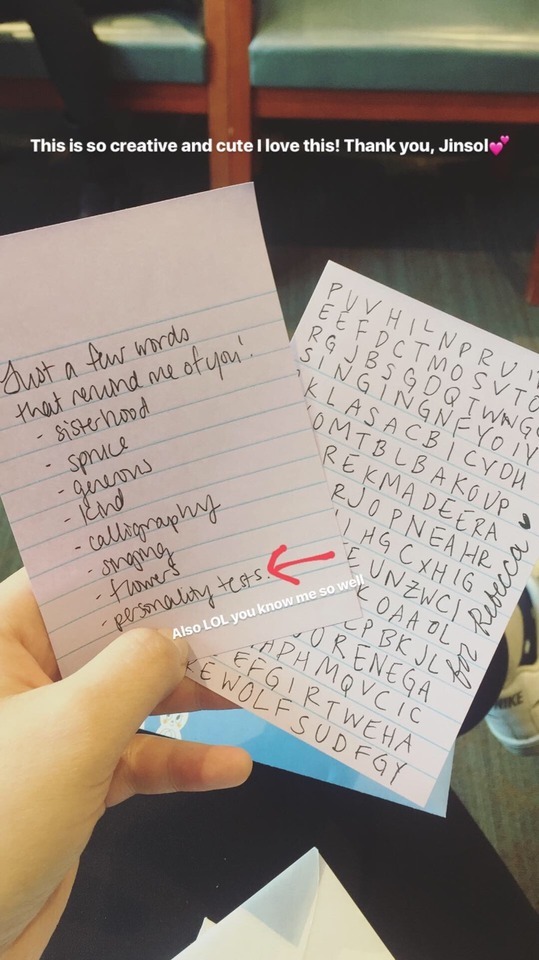 This is so creative and cute I love this! Thank you, Jinsol💕
Just a few words
that remind me of you!
- sisterhood
- spruce
- generous
- kind
- calligraphy
- singing
- flowers
- personality tests.
Also LOL you know me so well
PUVHILNPRUI
EEFDCTMOSVTO
RGJBSGDQTWNGO
SINGINGNFYOIV
KLASACBICVDH
OMTBLBAKOUP
REKMADEERA
RJOPNEAHR
IHGCXHIG
EUNZWCI
KOAAOL
EPBKJL
ORENEGA
APHMQVCIC
EFGIRTWEHA
EWOLFSUDFGY
for Rebecca ♥
NIKE